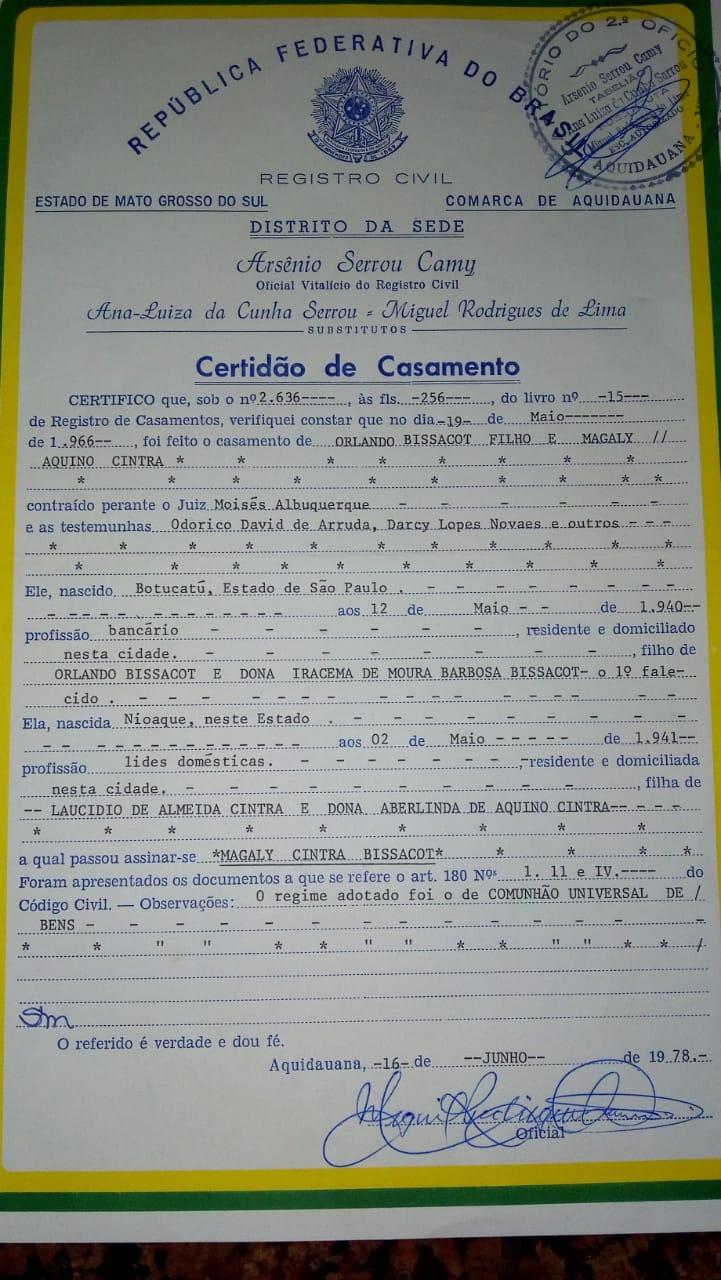 REPÚBLICA FEDERATIVA DO BRASIL
CARTÓRIO DO 2.º OFÍCIO
Arsenio Serrou Camy
TABELIÃO
Ana Luiza da Cunha Serrou
Miguel Rodrigues de Lima
ESC. AUTORIZADO
AQUIDAUANA
REGISTRO CIVIL
ESTADO DE MATO GROSSO DO SUL COMARCA DE AQUIDAUANA
DISTRITO DA SEDE
Arsênio Serrou Camy
Oficial Vitalício do Registro Civil
Ana-Luiza da Cunha Serrou - Miguel Rodrigues de Lima
SUBSTITUTOS
Certidão de Casamento
CERTIFICO que, sob o nº 2.636----, às fls. -256---, do livro nº -15---
de Registro de Casamentos, verifiquei constar que no dia -19- de Maio-------
de 1.966--, foi feito o casamento de ORLANDO BISSACOT FILHO E MAGALY //
AQUINO CINTRA * * * * * * * *
* * * * * * * * *
contraído perante o Juiz Moisés Albuquerque - - - - - - -
e as testemunhas Odorico David de Arruda, Darcy Lopes Novaes e outros - - -
* * * * * * * * * *
* * * * * * * * *
Ele, nascido Botucatú, Estado de São Paulo . - - - - - - - -
- - - - - - - - - - - - - aos 12 de Maio - - de 1.940--
profissão bancário - - - - - - , residente e domiciliado
nesta cidade. - - - - - - - - , filho de
ORLANDO BISSACOT E DONA IRACEMA DE MOURA BARBOSA BISSACOT- o 1º fale-
cido . - - - - - - - - - - - - - - -
Ela, nascida Nioaque, neste Estado . - - - - - - - - -
- - - - - - - - - - - - - aos 02 de Maio - - - - - de 1.941--
profissão lides domésticas. - - - - - - ,-residente e domiciliada
nesta cidade. - - - - - - - - , filha de
-- LAUCIDIO DE ALMEIDA CINTRA E DONA ABERLINDA DE AQUINO CINTRA-- - - -
* * * * * * * * *
a qual passou assinar-se *MAGALY CINTRA BISSACOT* * * * *
Foram apresentados os documentos a que se refere o art. 180 Nºs 1. 11 e IV.---- do
Código Civil. — Observações: O regime adotado foi o de COMUNHÃO UNIVERSAL DE /
BENS - - - - - - - - - - - - - -
* * " " * * " " * * " " * * /
O referido é verdade e dou fé.
Aquidauana, -16- de --JUNHO-- de 1978.-
Oficial